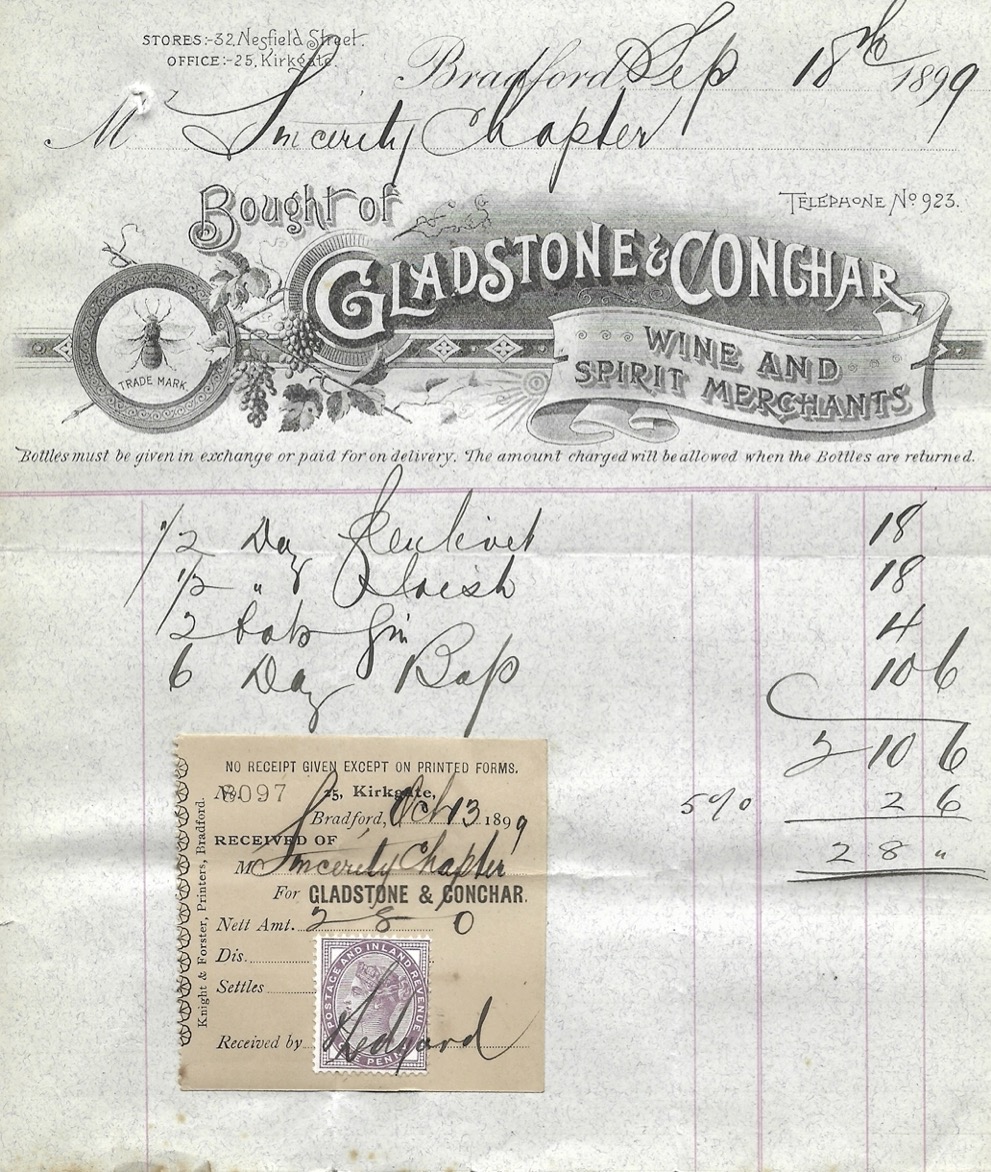 STORES:-32, Nesfield Street.
OFFICE:-25, Kirkgate.
Bradford, Sep 18th 1899
M Sincerity Chapter
Bought of
TELEPHONE No 923.
GLADSTONE & CONCHAR
WINE AND
SPIRIT MERCHANTS
TRADE MARK
Bottles must be given in exchange or paid for on delivery. The amount charged will be allowed when the Bottles are returned.
1/2 Doz Glenlivet 18
1/2 " Irish 18
2 bots Gin 4
6 Doz Bass 10 6
2 10 6
5% 2 6
2 8 "
NO RECEIPT GIVEN EXCEPT ON PRINTED FORMS.
No. 8097 25, Kirkgate,
Bradford, Oct 13 1899
RECEIVED OF
M Sincerity Chapter
For GLADSTONE & CONCHAR.
Nett Amt. 2 8 0
Dis.
Settles
Received by
POSTAGE AND INLAND REVENUE
ONE PENNY
Knight & Forster, Printers, Bradford.